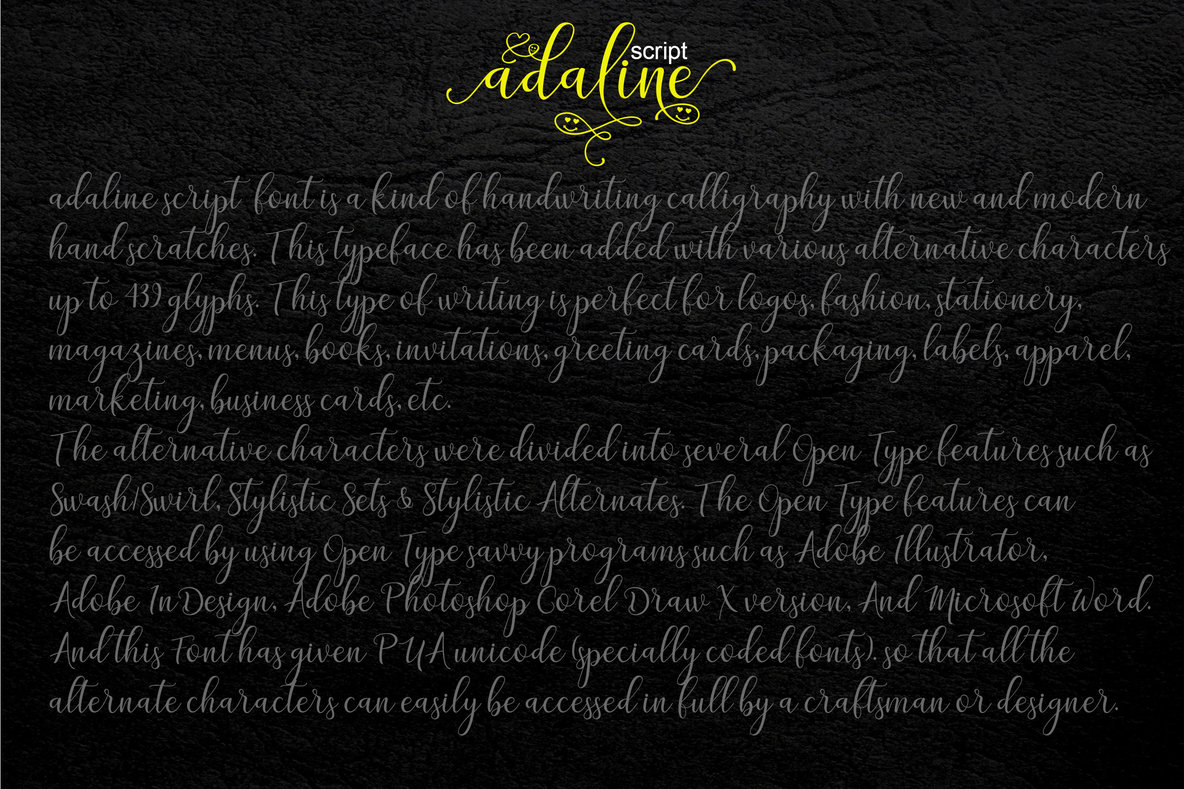 adaline script
adaline script font is a kind of handwriting calligraphy with new and modern
hand scratches. This typeface has been added with various alternative characters
up to 439 glyphs. This type of writing is perfect for logos, fashion, stationery,
magazines, menus, books, invitations, greeting cards, packaging, labels, apparel,
marketing, business cards, etc.
The alternative characters were divided into several Open Type features such as
Swash/Swirl, Stylistic Sets & Stylistic Alternates. The Open Type features can
be accessed by using Open Type savvy programs such as Adobe Illustrator,
Adobe InDesign, Adobe Photoshop Corel Draw X version, And Microsoft Word.
And this Font has given PUA unicode (specially coded fonts). so that all the
alternate characters can easily be accessed in full by a craftsman or designer.